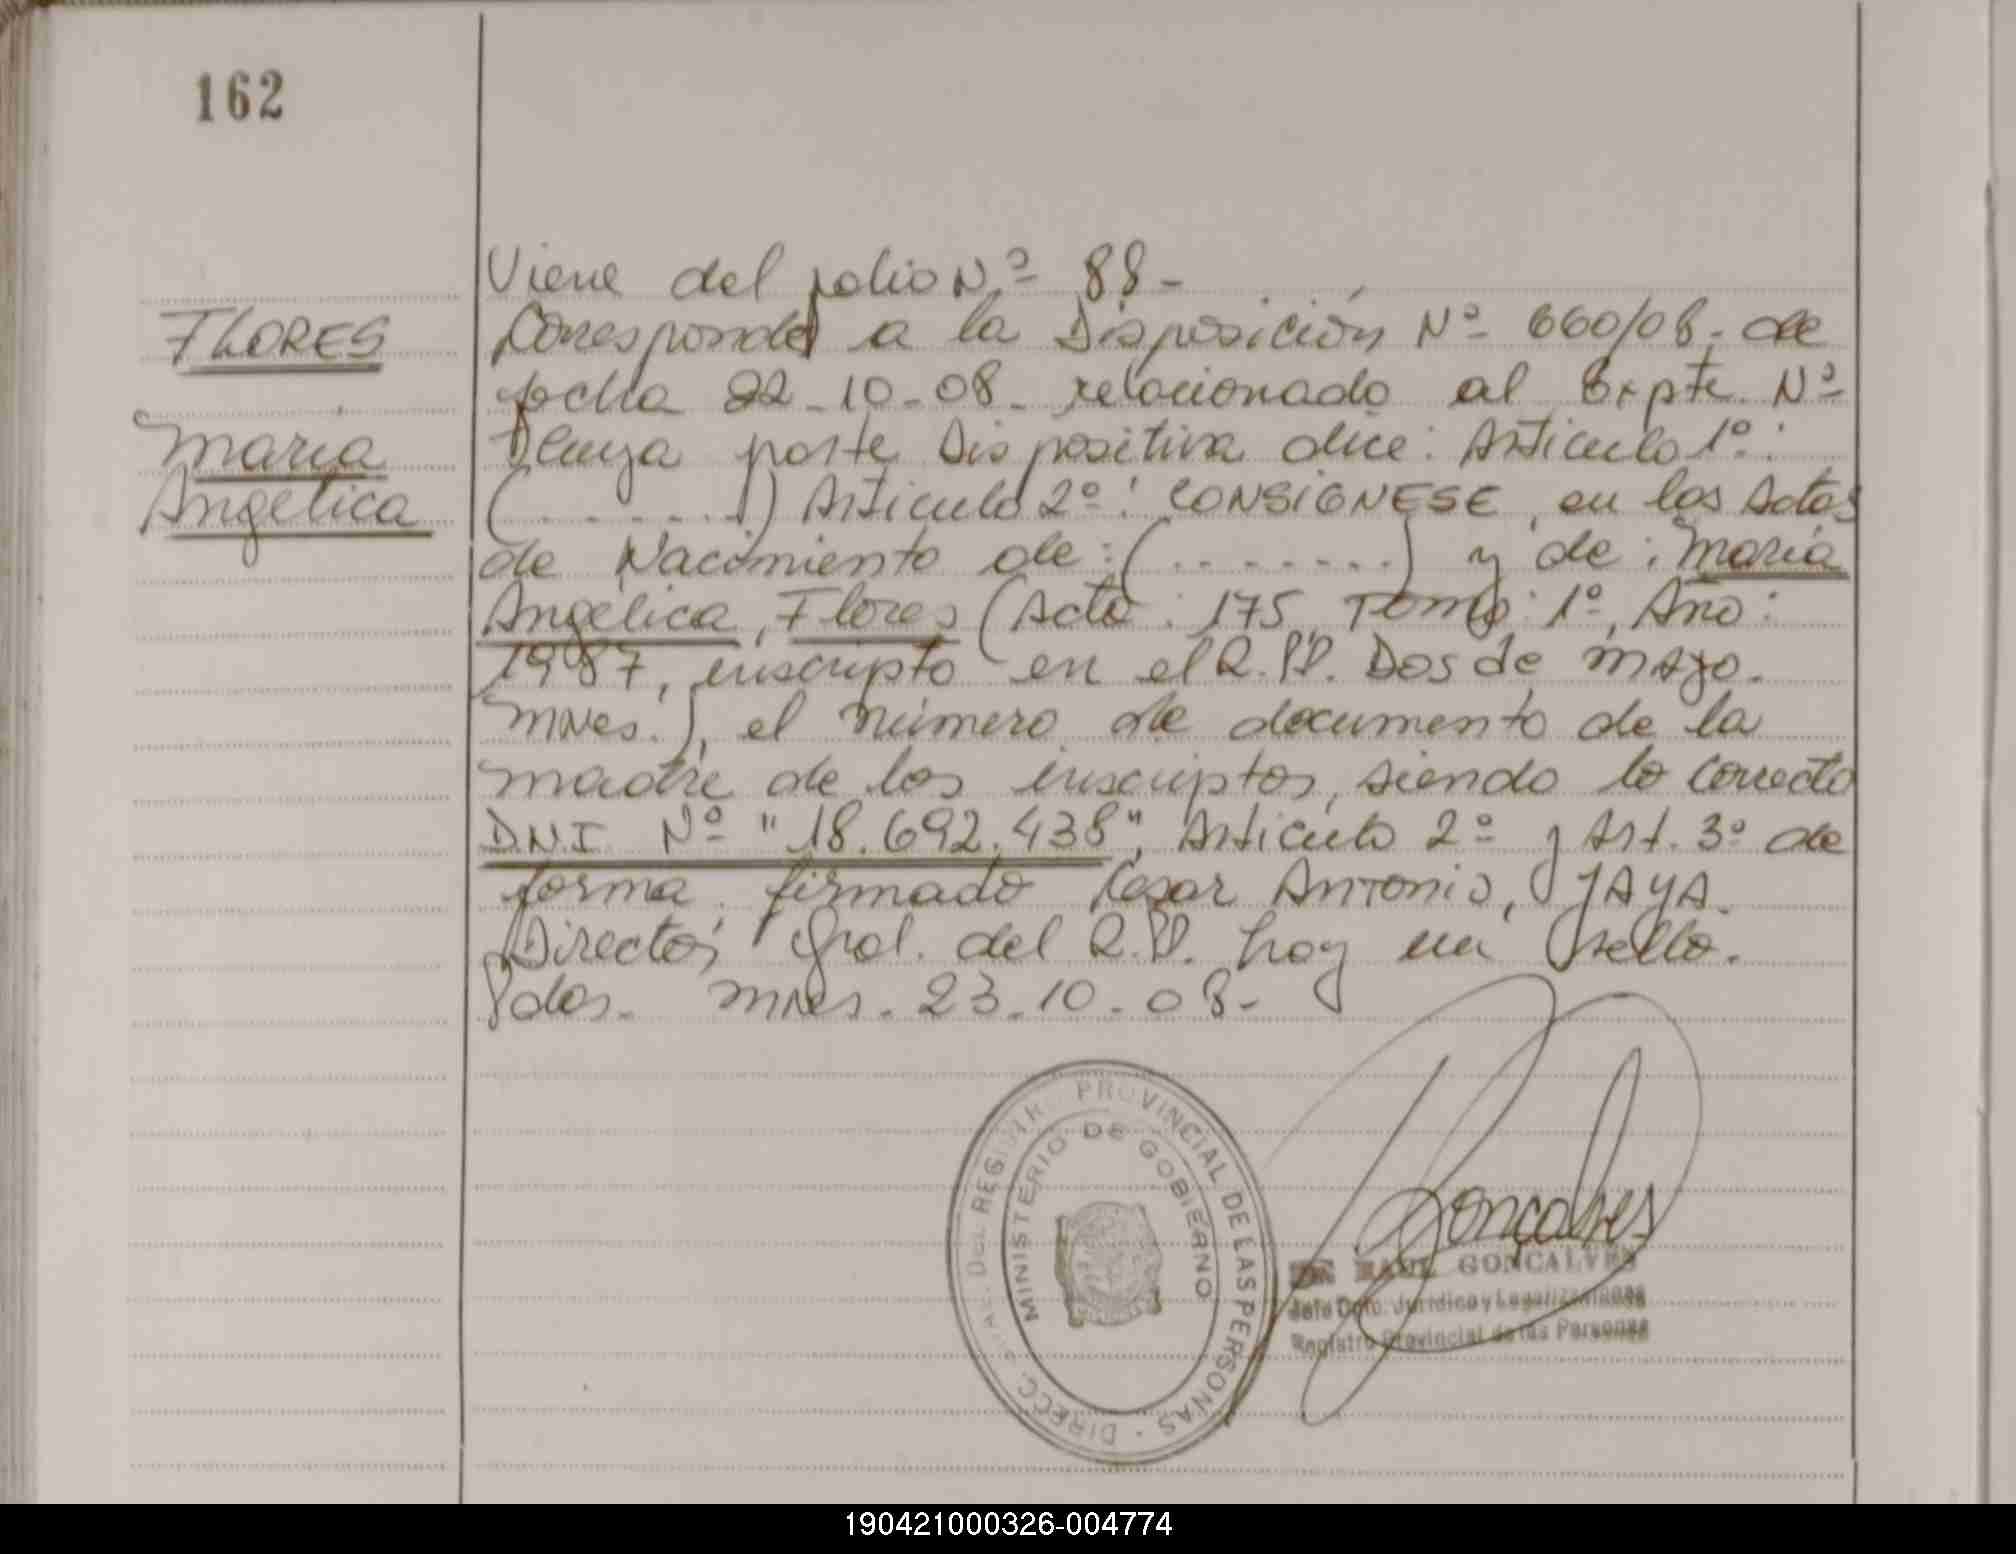 162
Viene del folio Nº 88-
FLORES
Corresponde a la Disposición Nº 660/08. de
fecha 22-10-08- relacionado al Expte. Nº
Maria
Cuya parte Dispositiva dice: Articulo 1º:
Angélica
(.......) Articulo 2º: CONSIGNESE, en las Actas
de Nacimiento de: (........) y de: Maria
Angélica, Flores (Acta: 175, Tomo: 1º, Año:
1987, inscripto en el R.P.P. Dos de Mayo.
Mnes.), el número de documento de la
madre de los inscriptos, siendo lo correcto
D.N.I Nº "18.692.438", Articulo 2º y Art. 3º de
forma. firmado Cesar Antonio, JAYA.
Director Gral. del R.P. hay un sello.
Pdas. Mnes. 23-10-08-
DIRECC. GRAL. DEL REGISTRO PROVINCIAL DE LAS PERSONAS
MINISTERIO DE GOBIERNO
Gonçalves
RAUL GONCALVES
Jefe Dpto. Jurídico y Legalizaciones
Registro Provincial de las Personas
190421000326-004774